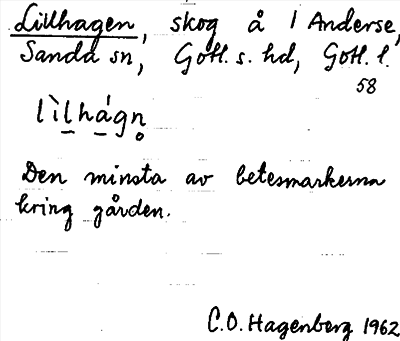 Lillhagen, skog å 1 Anderse,
Sanda sn, Gotl. s. hd, Gotl. l.
58
lìl̠há̠gn̥
Den minsta av betesmarkerna
kring gården.
C.O. Hagenberg 1962